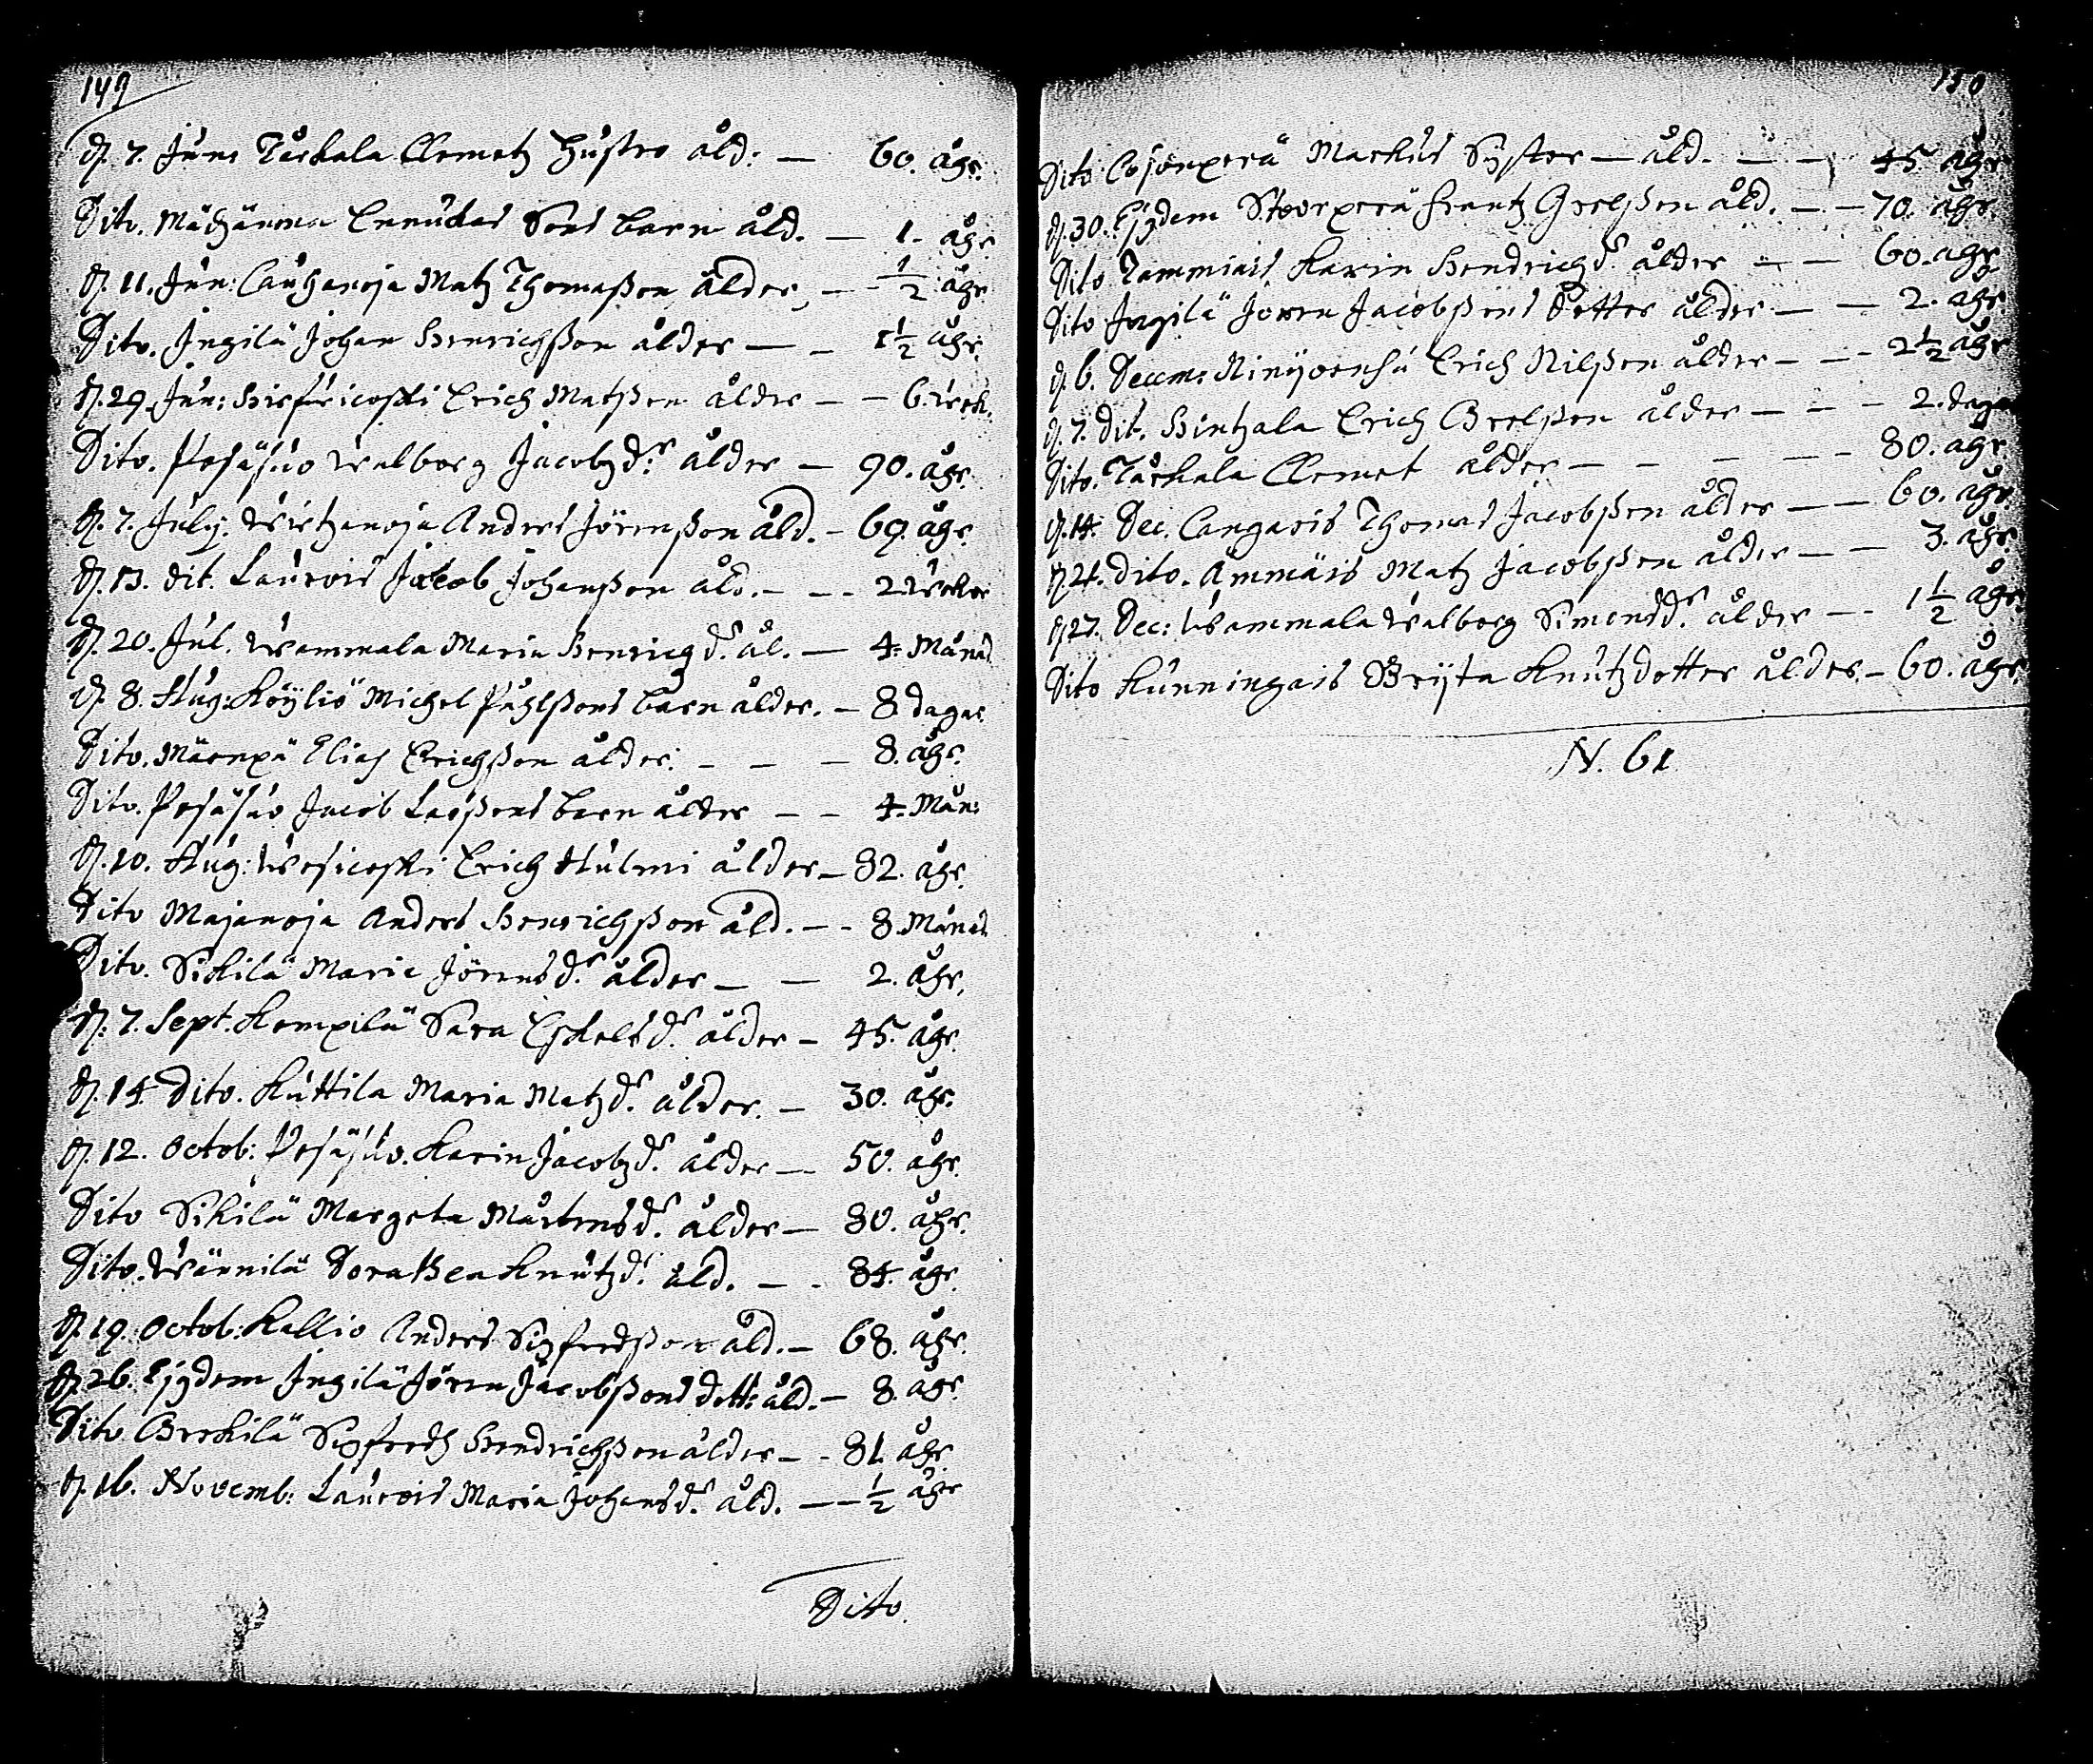 149
D. 7. Juni Täckala Clemetz Hustro åld: — 60. åhr.
Dito. Mähänma Ennuckas Sons barn åld. — 1. åhr
D. 11. Jun: Cauhanoja Matz Thomaßon ålder — 1/2 åhr
Dito. Ingilä Johan Henrichßon ålder — — 1 1/2 åhr.
D. 29. Jun: Erich Matßon ålder — — 6. Wek.
Dito. Pesäsuo Walborg Jacobzdr. ålder — 90. åhr.
D. 7. July. Wirtzanoja Anders Jörenßon åld. — 69. åhr.
D. 13. dit. Laurois Jacob Johanßon åld. — — 2 Wekor
D. 20. Jul. Wammala Maria Henrigdr. ål. — 4. Månad.
D. 8. Aug: Köyliö Michel Påhlßons barn ålder. — 8 dagar.
Dito. Mäenpä Elias Erichßon ålder. — — — 8. åhr.
Dito. Pesäsuo Jacob Larßons barn ålder — — 4. Mån:
D. 10. Aug: Wesicoski Erich ålder — 82. åhr.
Dito Majanoja Anders Henrichßon åld. — — 8. Månad.
Dito. Sikilä Maria Jörensdr. ålder — — 2. åhr.
D. 7. Sept. Kempilä Sara Eskelsdr. ålder — 45. åhr.
D. 14. Dito. Kuttila Maria Matzdr. ålder. — 30. åhr.
D. 12. Octob: Pesäsuo. Karin Jacobzdr. ålder — 50. åhr.
Dito Sikilä Margeta Mårtensdr. ålder — 80. åhr.
Dito. Wännilä Doraßea Knutzdr. åld. — — 84. åhr.
D. 19. Octob: Kallio Anders Sigfredßon åld. — 68. åhr.
D. 26. Ejzdem Ingilä Jören Jacobßons dott: åld. — 8. åhr.
Dito Brekilä Sigfredh Hendrichßon ålder — — 81. åhr.
D. 16. Novemb: Laurois Maria Johansdr. åld. — — 1/2 åhr
Dito.
150
Dito Cojonperä Markus Syster — åld. — — 45. åhr
D. 30. Ejzdem Stoorperä Frantz Grelßon åld. — — 70. åhr.
Dito Tammiais Karin Hendrichdr. ålder — — 60. åhr.
Dito Ingilä Jören Jacobßons Dotter ålder — — 2. åhr.
D. 6. Decem: Ninijoensu Erich Nilßon ålder — — 2 1/2 åhr
D. 7. dit. Hintzala Erich Grelßon ålder — — — 2. dagar
Dito. Täckala Clemet ålder — — — — 80. åhr.
D. 14. Dec. Cangaris Thomas Jacobßon ålder — — 60. åhr.
D. 21. dito. Ämmäis Matz Jacobßon ålder — — 3. åhr.
D. 27. Dec: Wammala Walborg Simonsdr. ålder — — 1 1/2 åhr.
Dito Kunningais Bryta Knutzdotter ålder. — 60. åhr.
N. 61